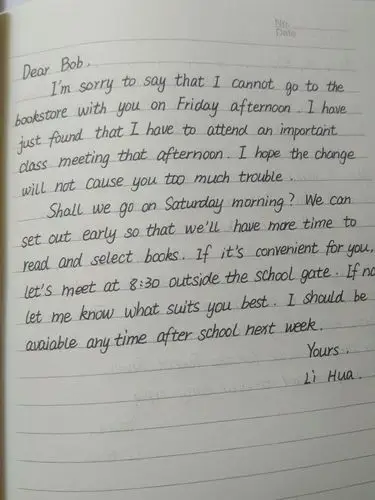 No.
Date
Dear Bob,
I'm sorry to say that I cannot go to the
bookstore with you on Friday afternoon. I have
just found that I have to attend an important
class meeting that afternoon. I hope the change
will not cause you too much trouble.
Shall we go on Saturday morning? We can
set out early so that we'll have more time to
read and select books. If it's convenient for you,
let's meet at 8:30 outside the school gate. If no
let me know what suits you best. I should be
avaiable any time after school next week.
Yours,
Li Hua.